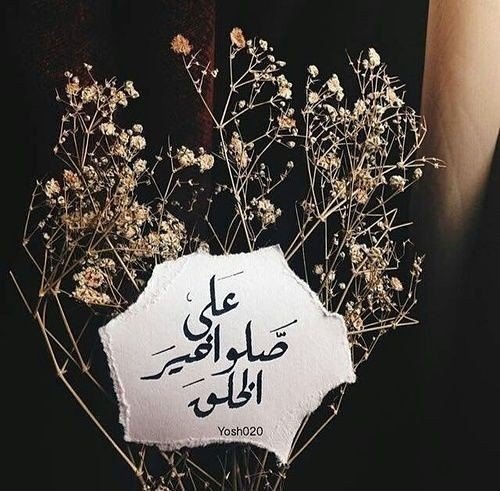 صَّلوا عَلى خيرَ
الخلقَ
Yosh020